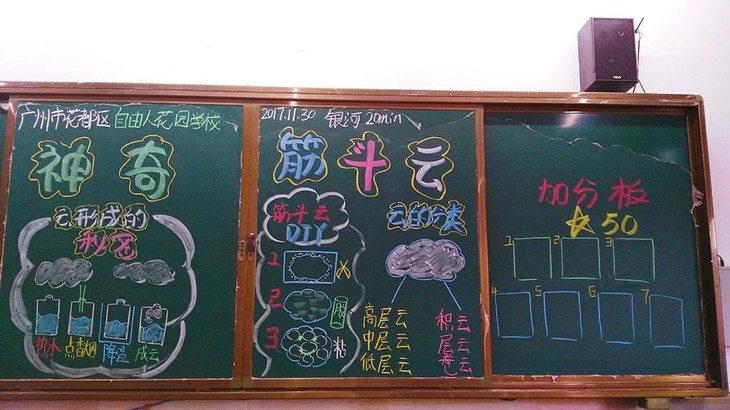 广州市花都区 自由人花园学校
神奇
云形成的
秘密
热水 点香烟 降温 成云
2017.11.30 银河 20min
筋斗云
筋斗云
DIY
1
2
3 粘
云的分类
高层云
中层云
低层云
积云
层云
卷云
加分板
50
1 2 3
4 5 6 7